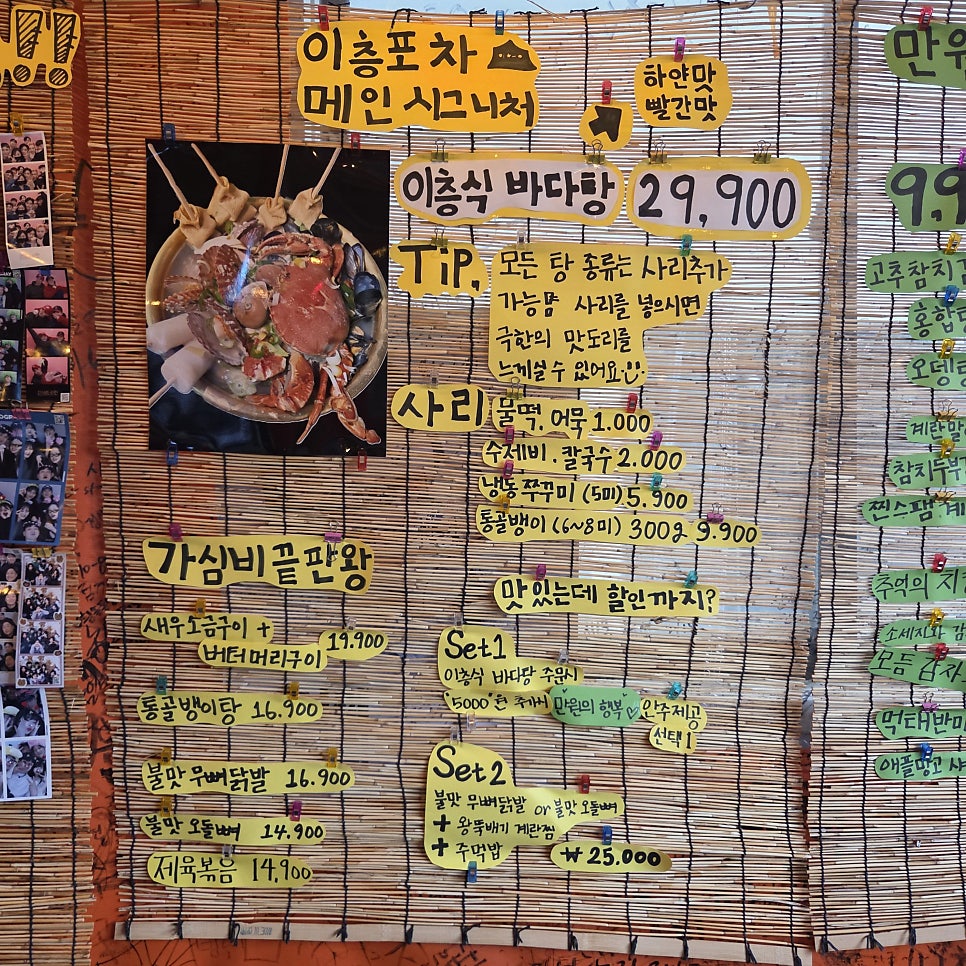 이층포차
메인 시그니처
하얀맛
빨간맛
이층식 바다탕 29,900
TiP.
모든 탕 종류는 사리추가
가능함 사리를 넣으시면
극한의 맛도리를
느게실 수 있어요
사리
물떡, 어묵 1.000
수제비 . 칼국수 2.000
냉동쭈꾸미 (5미) 5.900
통골뱅이 (6~8미) 300g 9.900
가심비 끝판왕
새우소금구이 +
버터머리구이
19.900
통골뱅이탕 16.900
불맛 무뼈닭발 16.900
불맛 오돌뼈 14.900
제육볶음 14,900
맛있는데 할인까지?
Set1
이층식 바다탕 주문시
"5000"원 추가시 만원의 행복 안주제공
선택1
Set2
불맛 무뼈닭발 or 불맛 오돌뼈
+ 왕뚝배기 계란찜
+ 주먹밥
₩25.000
9.9
고추참치
참치두부
찐스팸 계
추억의
소세지와
모듬 감자
먹태반미
애플망고